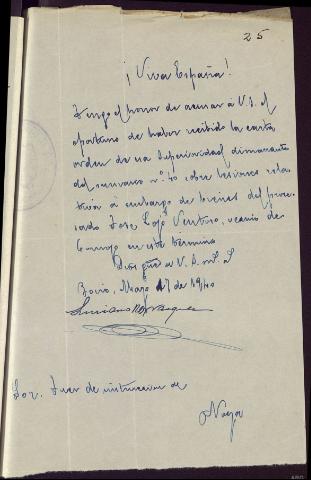 25
¡Viva España!
Tengo el honor de acusar á V.S. el
oportuno de haber recibido la carta
orden de esa Superioridad dimanante
del sumario nº 40 sobre lesiones rela
tiva á embargo de bienes del proce
sado Jose Lojo Ventoso, vecino de
en este término
Dios gue a V.S. m. a.
Boiro, Mayo 17 de 1940
Sor. Juez de instruccion de
Noya